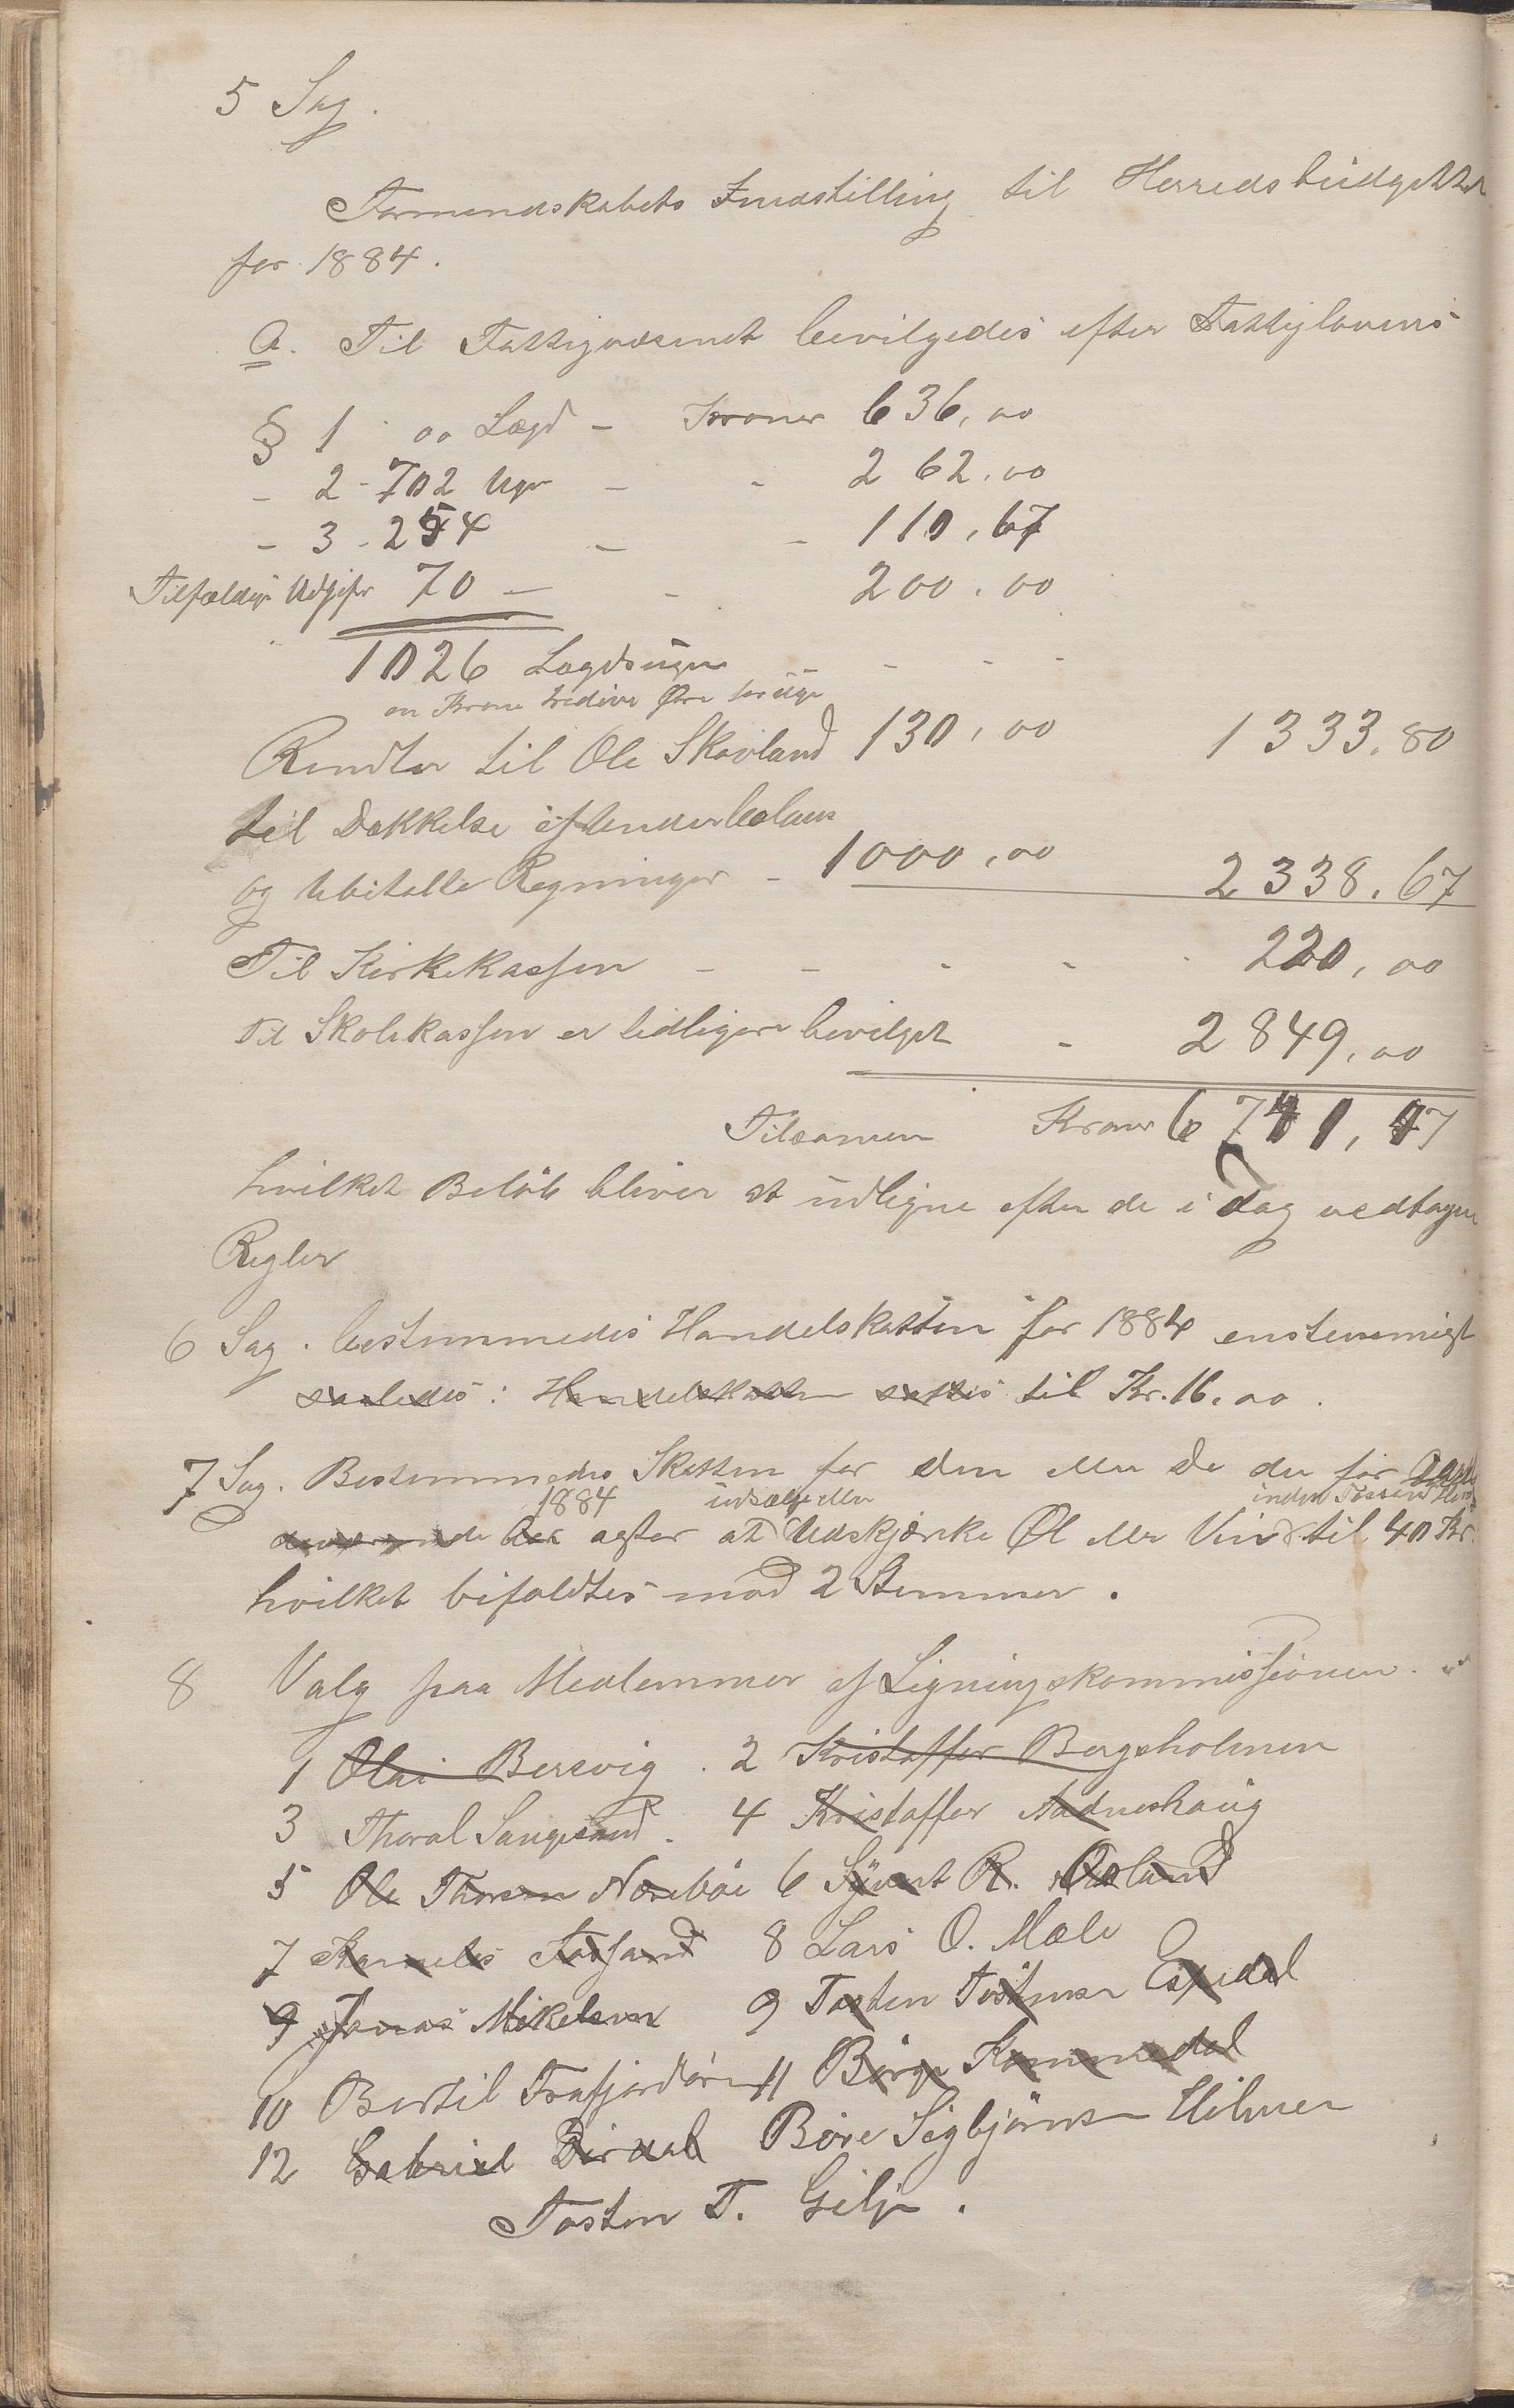 5 Sag.
Formendskabets Indstilling til Herredsbudgettet
for 1884.
a. Til Fattigvæsenet bevilgedes efter Fattiglovens
§ 1 00 Lægd - Kroner 636,00
- 2 - 702 Uger - - 262.00
- 3 - 254 - - 110,67
Tilfældige Udgifter 70 - - 200.00
1026 Lægdsuger - - - -
en Krone tredive Øre for Uge
Rendter til Ole Skovland 130,00 1333,80
til Dækkelse af Underbalans
og Ubetalte Regninger - 1000,00 2338,67
Til Kirkekassen - - - - - 220,00
Til Skolekassen er tidligere bevilget - 2849,00
Tilsamen Kroner 6741,47
hvilket Beløb bliver at udligne efter de i dag vedtagne
Regler
6 Sag. bestemmedes Handelskatten for 1884 enstemmigt
saaledes: Handelskatten sattes til Kr. 16.00.
7 Sag. Bestemmedes Skatten for den eller de der for
1884 udsælge eller inden Fossan Herred
de der agter at Udskjænke Øl eller Vin til 40 Kr.
hvilket bifaldtes mod 2 Stemmer.
8 Valg paa Medlemmer af Ligningskommissionen.
1 Olai Bersvig. 2 Kristoffer Bergsholmen
3 Thoral Sangesand. 4 Kristoffer Adneshaug
5 Ole Thorsen Nørebøe 6 Sjvert R. Aasland
7 Kornelis Fosssand 8 Lars O. Mæle
9 Jonas Mikelsen 9 Tosten Tostensen Espedal
10 Bertil Frafjordøren 11 Børge Kommedal
12 Gabriel Dirdal Børe Sigbjørnsen Hilmen
Tosten T. Gilje.